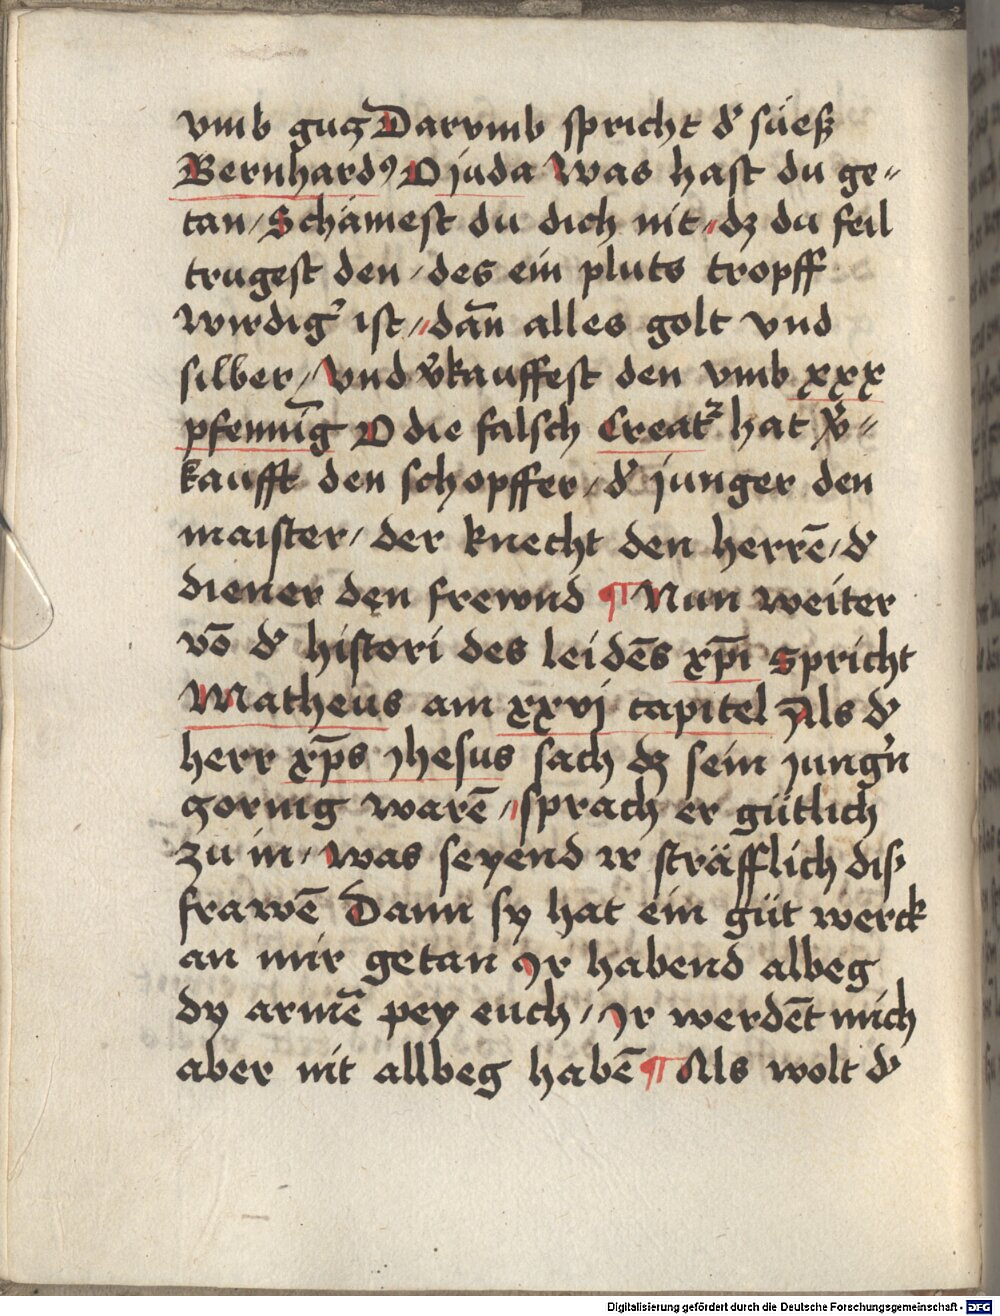 vmb gug Darvmb spricht d' süeß
Bernhardꝰ O juda Was hast du ge⸗
tan / Schämest du dich nit // dz du feil
trugest den / des ein pluts tropff
wirdig' ist // dān alles golt vnd
silber / Vnd v'kauffest den vmb xxx
pfenning O die falsch Creat' hat v'⸗
kaufft den schopffer / d' junger den
maister / der knecht den herrē / d'
diener den frewnd ¶ Nun weiter
vō d' histori des leidēs xp̄i Spricht
Matheus am xxvj capitel Als d'
herr xp̄s Jhesus sach dz sein jung'n
zornig warē / sprach er gütlich
zu in / was seyend ir sträfflich dis
frawē Dann sy hat ein güt werck
an mir getan Jr habend albeg
dy armē pey euch / Jr werdēt mich
aber nit allbeg habē ¶ Als wolt d'
Digitalisierung gefördert durch die Deutsche Forschungsgemeinschaft - DFG